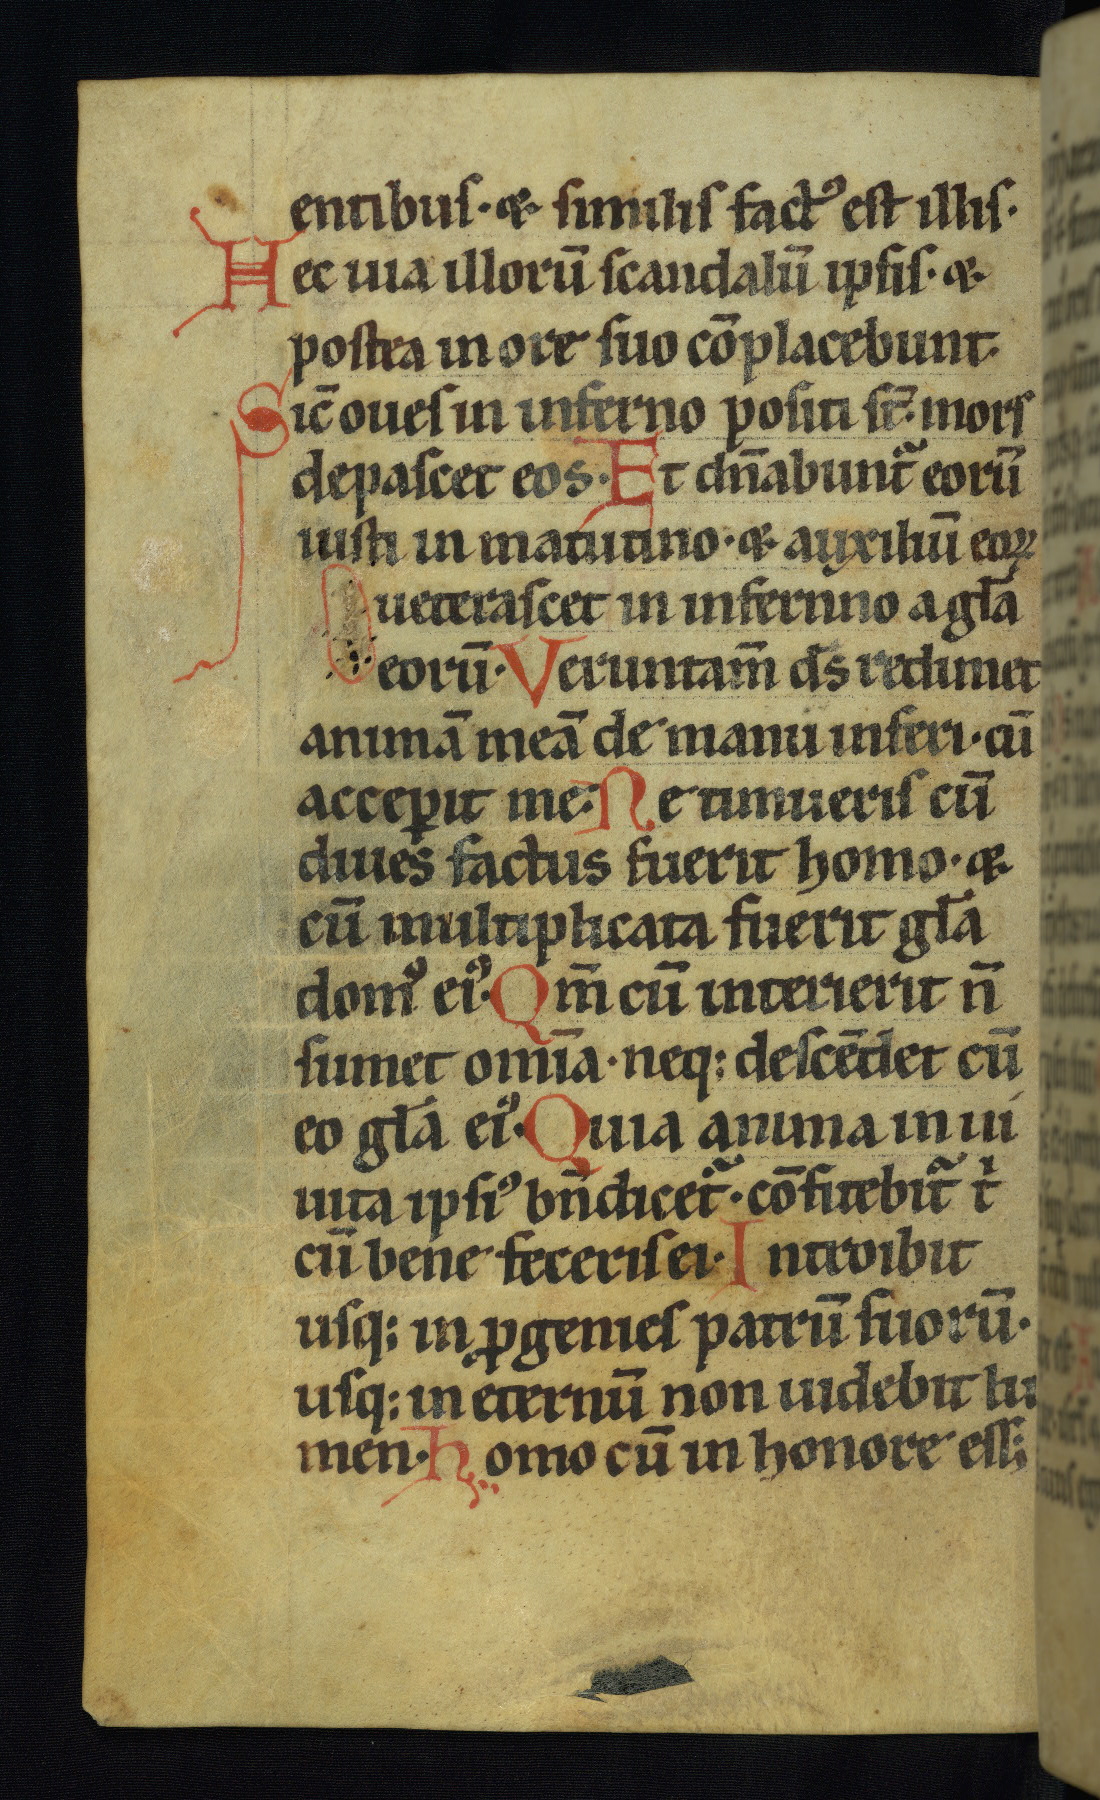 entibus· ⁊· similis fact᷒ est illis·
Hec uia illorū scandalū ipsis· ⁊·
postea in ore suo cōplacebunt·
Sic̄ oues in inferno positi st̄· mors
depascet eos· Et dn̄abunt᷑ eorū
iusti in matutino· ⁊· auxiliū eoꝝ
ueterascet in infernno a gl̄a
eorū· Veruntam̄ ds̄ redimet
animā meā de manu inferi· cū
acceꝑit me· Ne timueris cū
diues factus fuerit homo· ⁊·
cū multiplicata fuerit gl̄a
dom᷒ ei᷒· Qm̄ cū interierit n̄
sumet omīa· neq; descēdet cū
eo gl̄a ei᷒· Quia anima in ui
uita ipsi᷒ bn̄dicet᷑· cōfitebit᷑ t̄
cū bene feceris ei· Introibit
usq; in ꝓgenies patrū suorū·
usq; in eternū non uidebit lu
men· Homo cū in honore ess;